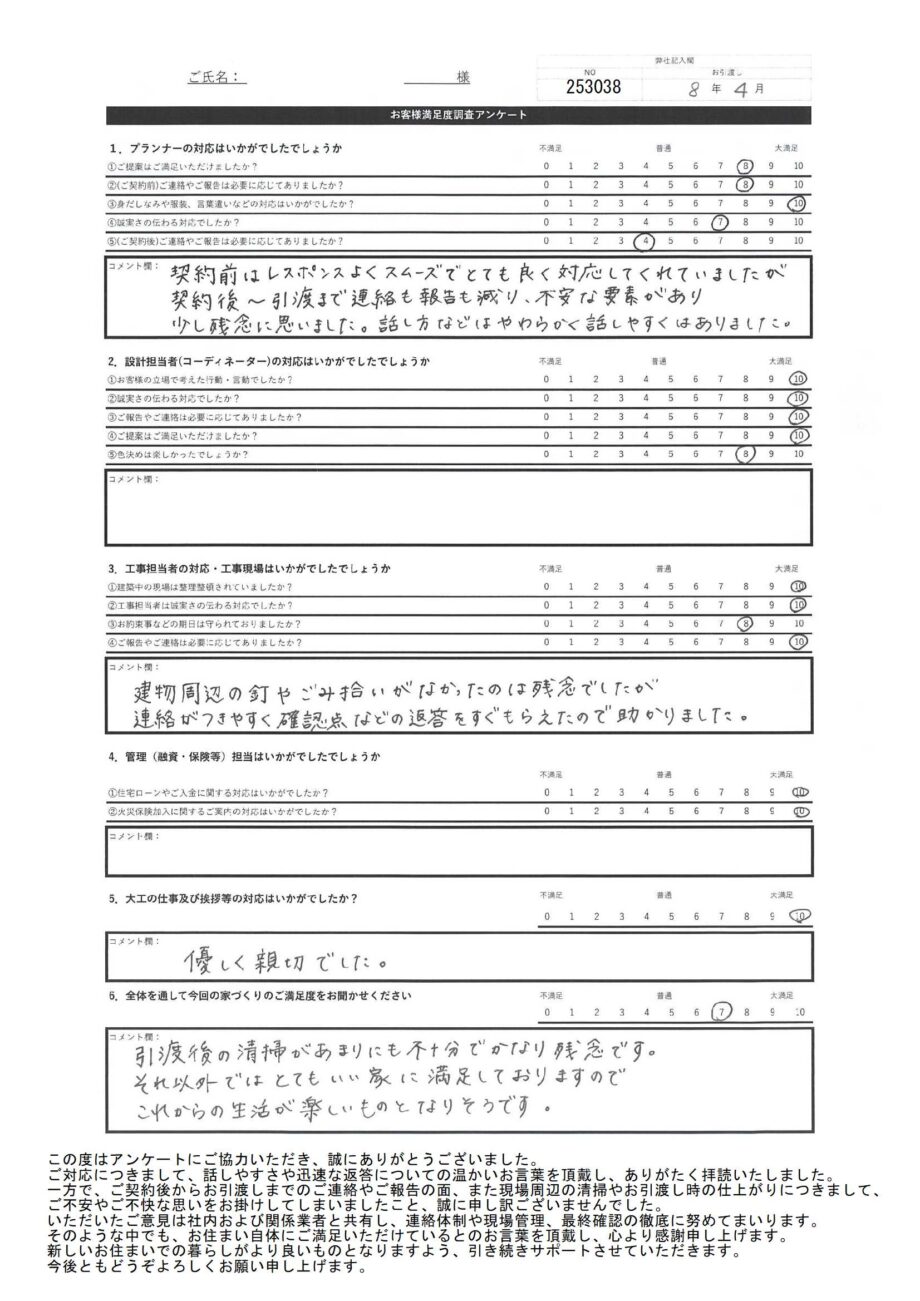 ご氏名： 様
弊社記入欄
NO お引渡し
253038 8年 4月
お客様満足度調査アンケート
1．プランナーの対応はいかがでしたでしょうか 不満足 普通 大満足
①ご提案はご満足いただけましたか？ 0 1 2 3 4 5 6 7 8 9 10
②(ご契約前)ご連絡やご報告は必要に応じてありましたか？ 0 1 2 3 4 5 6 7 8 9 10
③身だしなみや服装、言葉遣いなどの対応はいかがでしたか？ 0 1 2 3 4 5 6 7 8 9 10
④誠実さの伝わる対応でしたか？ 0 1 2 3 4 5 6 7 8 9 10
⑤(ご契約後)ご連絡やご報告は必要に応じてありましたか？ 0 1 2 3 4 5 6 7 8 9 10
コメント欄：
契約前はレスポンスよくスムーズでとても良く対応してくれていましたが
契約後〜引渡まで連絡も報告も減り、不安な要素があり
少し残念に思いました。話し方などはやわらかく話しやすくはありました。
2．設計担当者(コーディネーター)の対応はいかがでしたでしょうか 不満足 普通 大満足
①お客様の立場で考えた行動・言動でしたか？ 0 1 2 3 4 5 6 7 8 9 10
②誠実さの伝わる対応でしたか？ 0 1 2 3 4 5 6 7 8 9 10
③ご報告やご連絡は必要に応じてありましたか？ 0 1 2 3 4 5 6 7 8 9 10
④ご提案はご満足いただけましたか？ 0 1 2 3 4 5 6 7 8 9 10
⑤色決めは楽しかったでしょうか？ 0 1 2 3 4 5 6 7 8 9 10
コメント欄：
3．工事担当者の対応・工事現場はいかがでしたでしょうか 不満足 普通 大満足
①建築中の現場は整理整頓されていましたか？ 0 1 2 3 4 5 6 7 8 9 10
②工事担当者は誠実さの伝わる対応でしたか？ 0 1 2 3 4 5 6 7 8 9 10
③お約束事などの期日は守られておりましたか？ 0 1 2 3 4 5 6 7 8 9 10
④ご報告やご連絡は必要に応じてありましたか？ 0 1 2 3 4 5 6 7 8 9 10
コメント欄：
建物周辺の釘やごみ拾いがなかったのは残念でしたが
連絡がつきやすく確認点などの返答をすぐもらえたので助かりました。
4．管理（融資・保険等）担当はいかがでしたでしょうか
不満足 普通 大満足
①住宅ローンやご入金に関する対応はいかがでしたか？ 0 1 2 3 4 5 6 7 8 9 10
②火災保険加入に関するご案内の対応はいかがでしたか？ 0 1 2 3 4 5 6 7 8 9 10
コメント欄：
5．大工の仕事及び挨拶等の対応はいかがでしたか？ 不満足 普通 大満足
0 1 2 3 4 5 6 7 8 9 10
コメント欄：
優しく親切でした。
6．全体を通して今回の家づくりのご満足度をお聞かせください 不満足 普通 大満足
0 1 2 3 4 5 6 7 8 9 10
コメント欄：
引渡後の清掃があまりにも不十分でかなり残念です。
それ以外ではとてもいい家に満足しておりますので
これからの生活が楽しいものとなりそうです。
この度はアンケートにご協力いただき、誠にありがとうございました。
ご対応につきまして、話しやすさや迅速な返答についての温かいお言葉を頂戴し、ありがたく拝読いたしました。
一方で、ご契約後からお引渡しまでのご連絡やご報告の面、また現場周辺の清掃やお引渡し時の仕上がりにつきまして、
ご不安やご不快な思いをお掛けしてしまいましたこと、誠に申し訳ございませんでした。
いただいたご意見は社内および関係業者と共有し、連絡体制や現場管理、最終確認の徹底に努めてまいります。
そのような中でも、お住まい自体にご満足いただけているとのお言葉を頂戴し、心より感謝申し上げます。
新しいお住まいでの暮らしがより良いものとなりますよう、引き続きサポートさせていただきます。
今後ともどうぞよろしくお願い申し上げます。